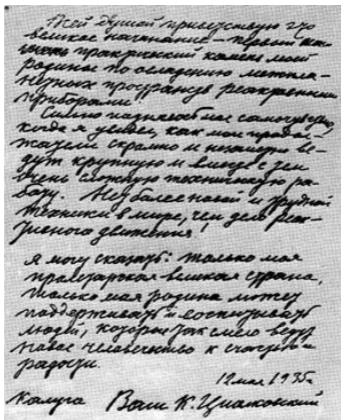 Всей душой приветствую это
великое начинание – первый
практический камень моей
родины по овладению межпла-
нетных пространств реактивными
приборами.
Сильно поднялось мое самочувствие,
когда я увидел, как мои продол-
жатели скромно и ве-
дут крупную и вместе с тем
очень сложную техническую ра-
боту. Нет более новой и трудной
техники в мире, чем дело реак-
тивного движения!
Я могу сказать: только моя
пролетарская великая страна,
только моя родина может
поддерживать и воспитывать
людей, которые так смело ведут
человечество к счастью и
радости.
12 мая 1935г.
Калуга Ваш К. Циолковский